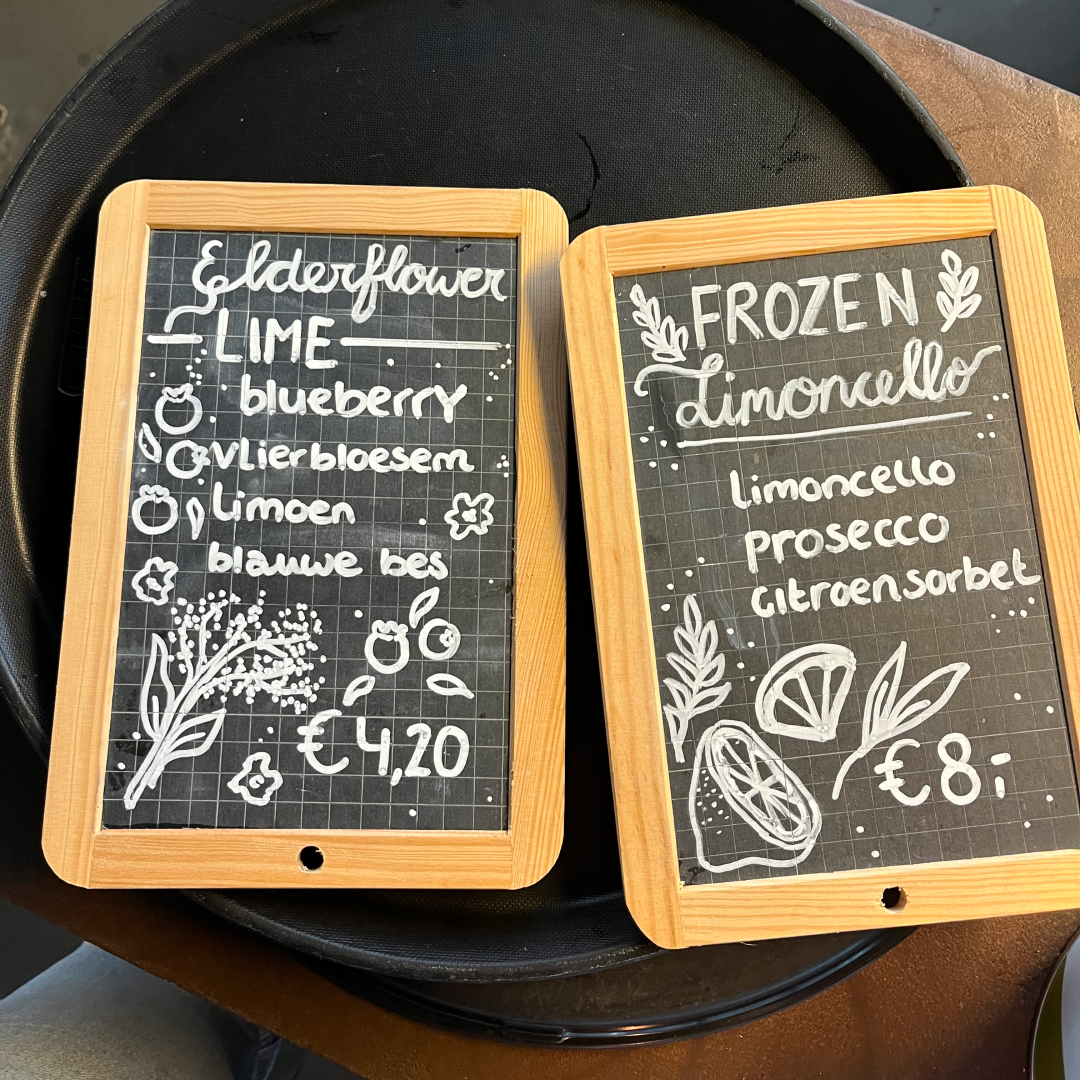 Elderflower
LIME
blueberry
vlierbloesem
limoen
blauwe bes
€ 4,20
FROZEN
Limoncello
limoncello
prosecco
citroensorbet
€ 8,-